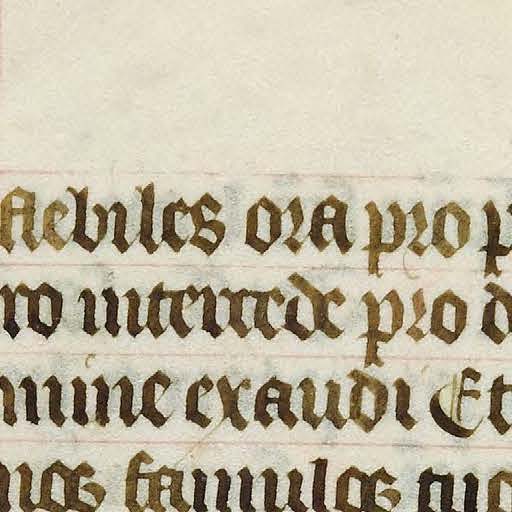 flebiles ora pro p
ro intercede pro d
mine exaudi Et
famulos tuo